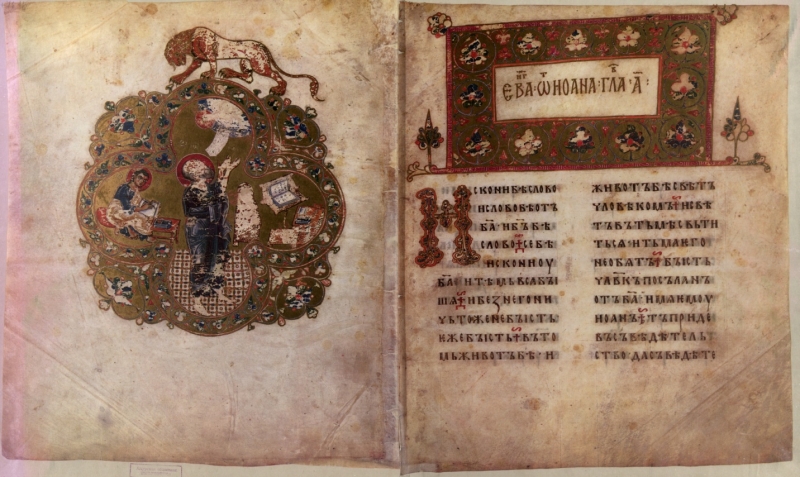 ЕВА҃·Ѡ҃Т·ИОАНА·ГЛА҃В·А҃:
ИСКОНИБѢСЛОВО
ИСЛОВОБѢОТЪ
Б҃АИБ҃ЪБѢ
СЛОВО·СЕБѢ
ИСКОНИОУ
Б҃АИТѢМЬВЬСАБЪІ
ША·ИБЕЗНЕГОНИ
ЧЬТОЖЕНЕБЪІСТЬ
ИЖЕБЪІСТЬ·ВЪТО
МЬЖИВОТЪБѢ·И
ЖИВОТЪБѢСВѢТЪ
ЧЛОВѢКОМЪ·ИСВѢ
ТЪВЪТЬМѢСВЬТИ
ТЬСѦ·ИТЬМАѤГО
НЕОБѦТЪ·БЪІСТЬ
ЧЛ҃ВКЪПОСЪЛАНЪ
ОТЪБ҃А·ИМѦѤМОУ
ИОАНЪ·ТЪПРИДЕ
ВЪСЪВѢДѢТЕЛЬ
СТВО·ДАСЪВѢДѢТЕ